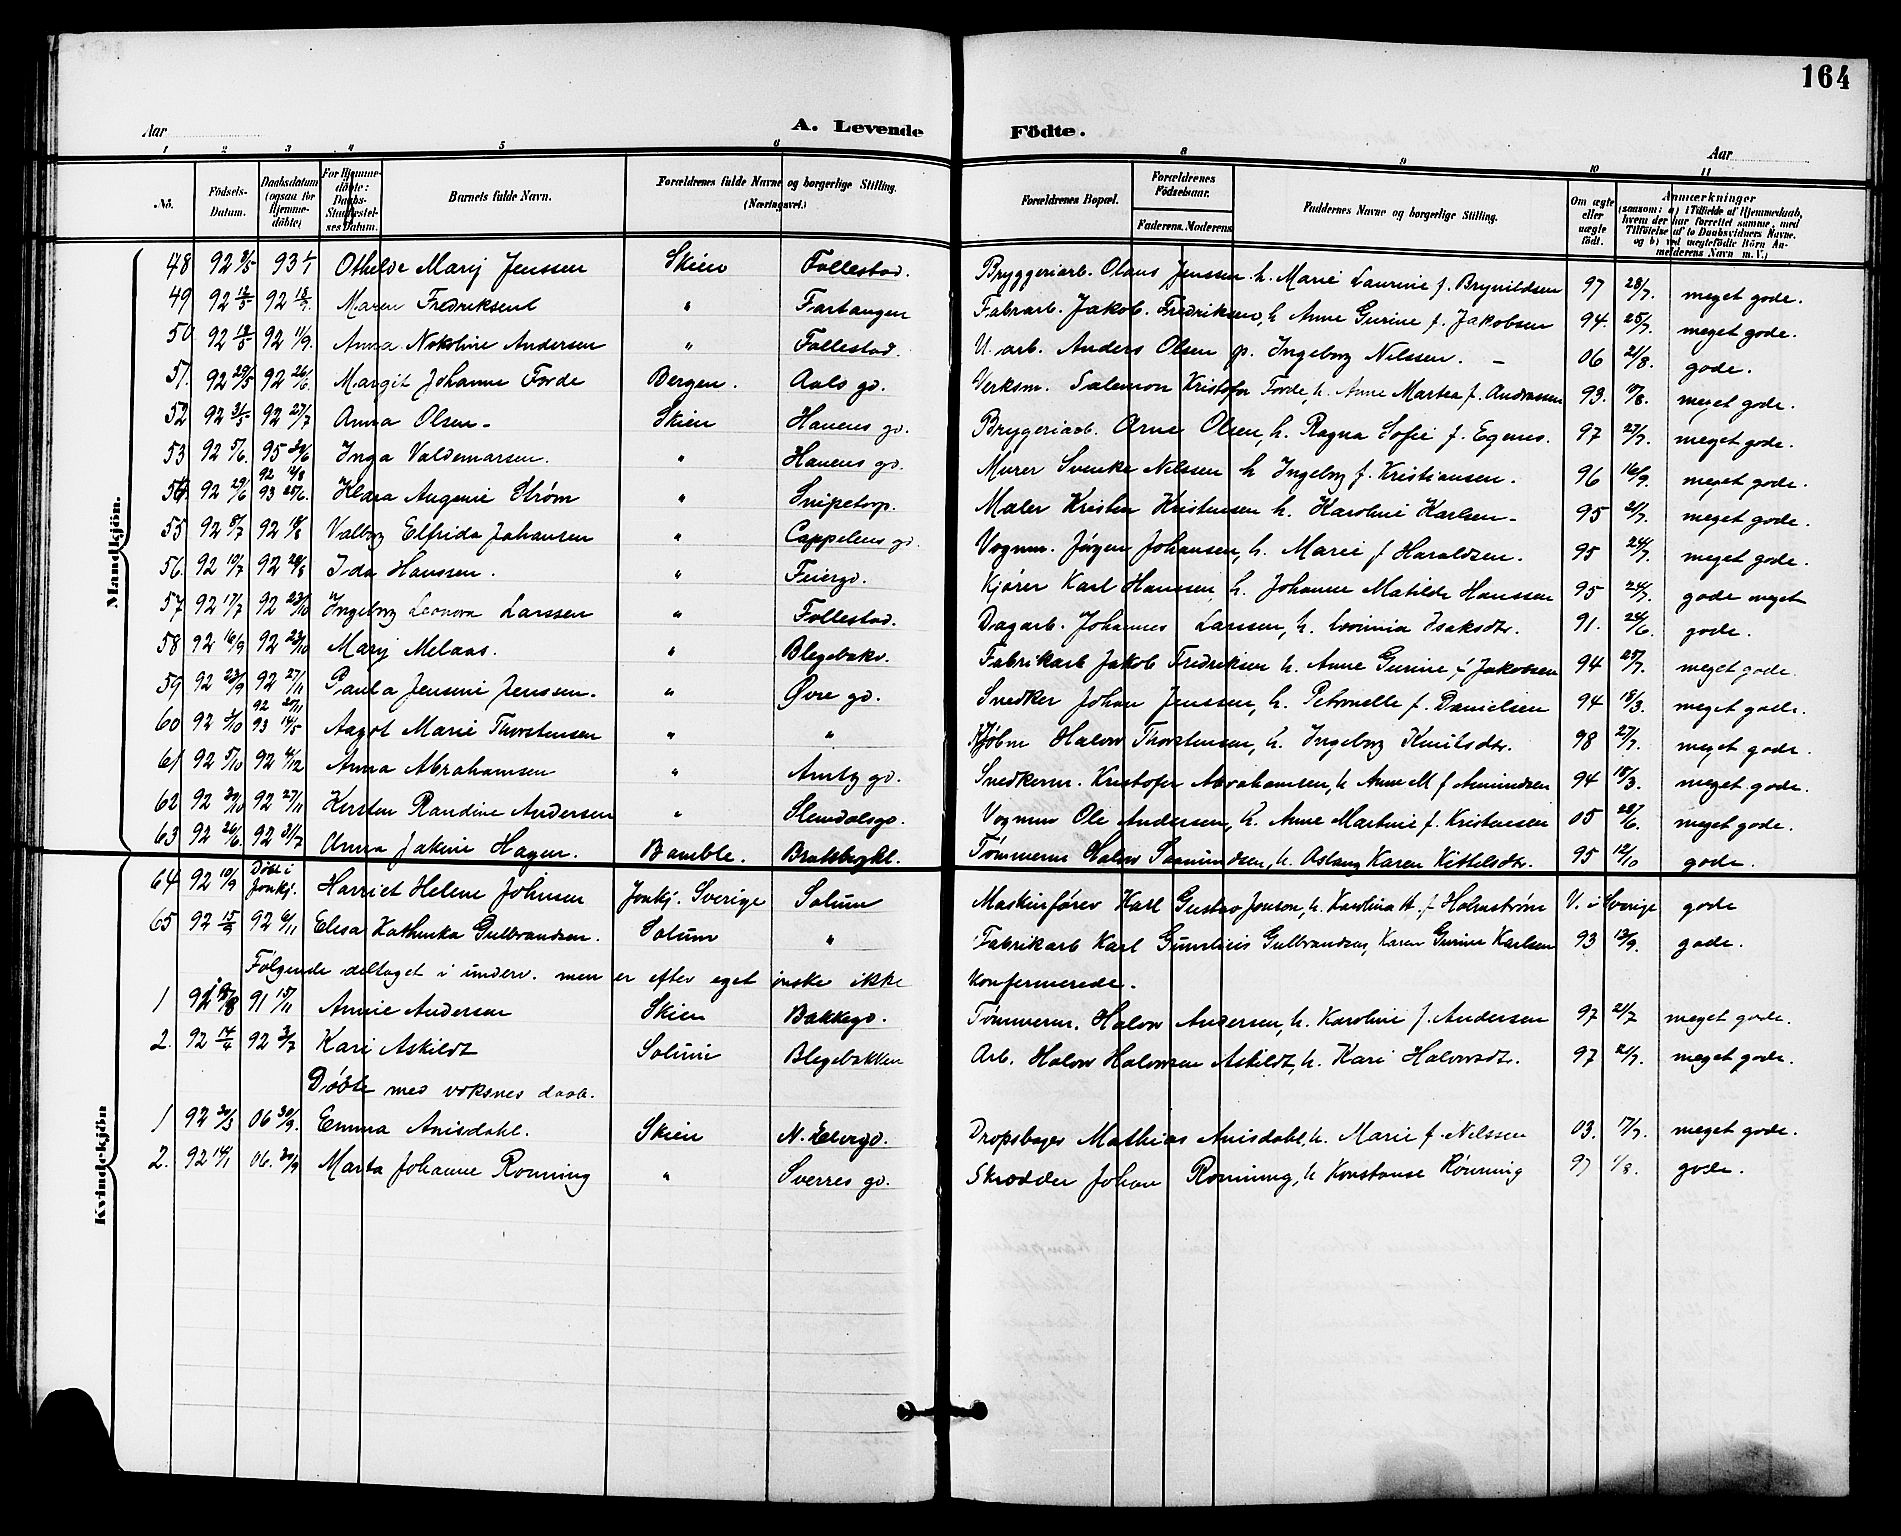 164
Aar
A. Levende Födte.
Aar
1 2 3 4 5 6 8 9 10 11
No. Födsels-Datum. Daabsdatum (ogsaa for Hjemmedöbte) For Hjemmedöbte: Daabs-Stadfæstelses Datum. Barnets fulde Navn. Forældrenes fulde Navne og borgerlige Stilling. (Næringsvei.) Forældrenes Bopæl. Forældrenes Födselsaar. Faderens. Moderens. Faddernes Navne og borgerlige Stilling. Om ægte eller uægte födt. Anmærkninger (saasom: a) i Tilfælde af Hjemmedaab, hvem der har forrettet samme, med Tilföielse af to Daabsvidners Navne. og b) ved uægtefödte Börn Anmelderens Navn m. V.)
Mandkjön.
48 92 9/5 93 1/1 Othilde Marij Jenssen Skien Follestad. Bryggeriarb. Olaus Jenssen h. Marie Laurine f. Brynildsen 97 28/7. meget gode.
49 92 12/5 92 18/9. Maren Fredriksen " Fartangen Fabrarb. Jakob. Fredriksen, h Anne Gurine f. Jakobsen 94. 25/7. meget gode.
50 92 18/5 92 11/9. Anna Nokoline Andersen " Follestad. U. arb. Anders Olsen p. Ingeborg Nilssen. - 06 21/8. gode.
51. 92 29/5 92 26/6. Margit Johanne Forde Bergen. Aals gd. Verksm. Salemon Kristofer Forde, h. Anne Martea f. Andrassen 93. 10/8. meget gode.
52 92 31/5 92 27/7 Anna Olsen - Skien Hanens gd. Bryggeriarb. Arne Olsen, h. Ragna Sofie f. Egenes. 97 27/7. meget gode.
53 92 5/6. 95 30/6 Inga Valdemarsen. " Hanens gd. Murer Svenke Nilssen h Ingeborg f. Kristiansen. 96 16/9. meget gode.
54. 92 29/6 92 14/8 93 25/6. Klara Augenie Strøm " Snipetorp. Maler Kristen Kristensen h. Karoline Karlsen - 95 21/7. meget gode.
55 92 8/7 92 18/8 Valborg Elfrida Johansen " Cappelens gd. Vognm. Jørgen Johansen, h. Marie f Haraldsen. 95 24/7. meget gode.
56. 92 10/7 92 28/8 Ida Hanssen. " Feiergd. Kjører Karl Hanssen, h. Johanne Matilde Hanssen 95 24/7. gode meget
57 92 17/7 92 23/10 Ingeborg Leonora Larssen " Follestad. Dagarb. Johannes Larssen, h. Lovinia Isaksdtr. 91. 24/6. gode.
58 92 16/9 92 23/10 Marij Melaas. " Blegebakv. Fabrikarb Jakob Fredriksen h. Anne Gurine f Jakobsen 94 25/7. meget gode.
59 92 23/9 92 27/11 Paula Jensine Jenssen. " Øvre gd. Snedker Johan Jenssen, h. Petronelle f. Danielsen 94 18/3. meget gode.
60 92 3/10 92 20/11 93 14/5 Aagot Marie Thorstensen " " Kjøbm Halvor Thorstensen, h. Ingeborg Knutsdtr. 98 27/7. meget gode.
61 92 5/10 92 4/12 Anna Abrahamsen " Amtg gd. Snedkerm. Kristofer Abrahamsen, h Anne M f Amundsen 94 18/3. meget gode.
62 92 30/10 92 27/11 Kirsten Randine Andersen " Slemdalsgd. Vognm Ole Andersen, h. Anne Martine f. Kristensen 05 28/6. meget gode.
63 92 26/6. 92 31/7 Anna Jakine Hagen. Bamble. Bratsbergkl. Tømmerm Halvor Saamundsen, h. Aslaug Karen Kittelsdtr. 95 12/10 gode.
64 92 10/9 Døbt i Jonkj. Harriet Helene Johnsen Jonkj. Sverige Solum Maskinfører Karl Gustav Jonson, h. Karolina H. f Holmstrøm V. i Sverige gode
65 92 15/5 92 6/11 Elisa Kathinka Gulbrandsen. Solum " Fabrikarb Karl Gunelius Gulbrandsen, Karen Gurine Karlsen 93 13/9. gode.
Følgende deltaget i underv. men er efter eget ønske ikke konfermerede.
Kvindekjön
1 92 18/8 91 15/11 Annie Andersen Skien Bakkegd. Tømmerm. Halvor Andersen, h. Karoline f. Andersen 97 21/7 meget gode.
2. 92 14/4 92 3/7 Kari Askildt Solum Blegebakken Arb. Halvor Halvorsen Askildt, h. Kari Halvorsdtr. 97 21/7. meget gode.
Døbte med voksnes daab.
1 92 30/3 06 30/9. Emma Anisdahl. Skien N. Elvegd. Dropsbager Mathias Anisdahl, h. Marie f. Nilssen 03. 17/7. meget gode.
2. 92 14/1 06. 30/9 Marta Johanne Ronning " Sverres gd. Skrædder Johan Ronning, h Konstanse Rönning 97 1/8. gode.